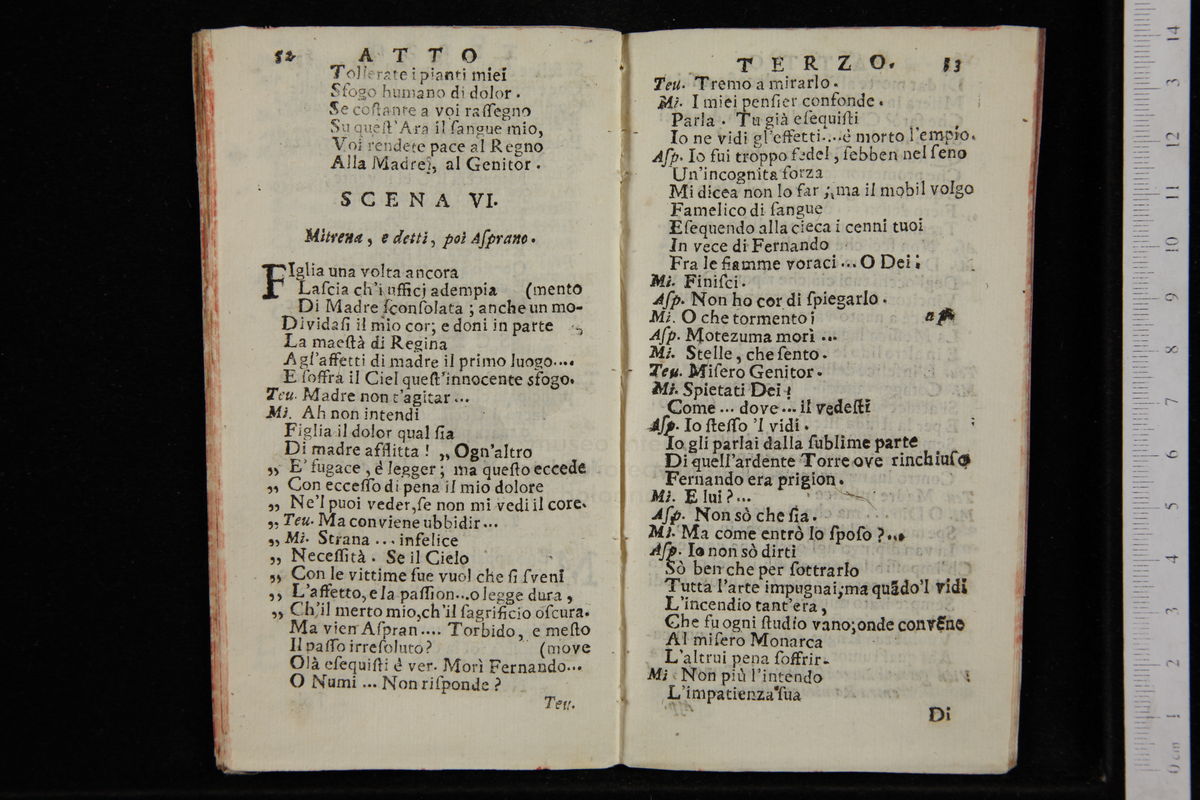 52 ATTO
Tollerate i pianti miei
Sfogo humano di dolor.
Se costante a voi rassegno
Su quest'Ara il sangue mio,
Voi rendete pace al Regno
Alla Madre, al Genitor.
SCENA VI.
Mitrena, e detti, poi Asprano.
FIglia una volta ancora
Lascia ch'i ufficj adempia (mento
Di Madre sconsolata; anche un mo-
Dividasi il mio cor; e doni in parte
La maestà di Regina
Agl'affetti di madre il primo luogo....
E soffra il Ciel quest'innocente sfogo.
Teu. Madre non t'agitar...
Mi. Ah non intendi
Figlia il dolor qual sia
Di madre afflitta! „ Ogn'altro
„ E' fugace, è legger; ma questo eccede
„ Con eccesso di pena il mio dolore
„ Ne'l puoi veder, se non mi vedi il core.
„ Teu. Ma conviene ubbidir...
„ Mi. Strana ... infelice
„ Necessità. Se il Cielo
„ Con le vittime sue vuol che si sveni
„ L'affetto, e la passion...o legge dura,
„ Ch'il merto mio, ch'il sagrificio oscura.
Ma vien Aspran.... Torbido, e mesto
Il passo irresoluto? (move
Olà esequisti è ver. Morì Fernando...
O Numi ... Non risponde?
Teu.
TERZO. 53
Teu. Tremo a mirarlo.
Mi. I miei pensier confonde.
Parla. Tu già esequisti
Io ne vidi gl'effetti....è morto l'empio.
Asp. Io fui troppo fedel, sebben nel seno
Un'incognita forza
Mi dicea non lo far; ma il mobil volgo
Famelico di sangue
Esequendo alla cieca i cenni tuoi
In vece di Fernando
Fra le fiamme voraci... O Dei!
Mi. Finisci.
Asp. Non ho cor di spiegarlo.
Mi. O che tormento!
Asp. Motezuma morì ...
Mi. Stelle, che sento.
Teu. Misero Genitor.
Mi. Spietati Dei!
Come ... dove ... il vedesti
Asp. Io stesso 'l vidi.
Io gli parlai dalla sublime parte
Di quell'ardente Torre ove rinchiuso
Fernando era prigion.
Mi. E lui?...
Asp. Non sò che sia.
Mi. Ma come entrò lo sposo?...
Asp. Io non sò dirti
Sò ben che per sottrarlo
Tutta l'arte impugnai; ma quãdo'l vidi
L'incendio tant'era,
Che fu ogni studio vano; onde convẽne
Al misero Monarca
L'altrui pena soffrir.
Mi. Non più l'intendo
L'impatienza sua
Di